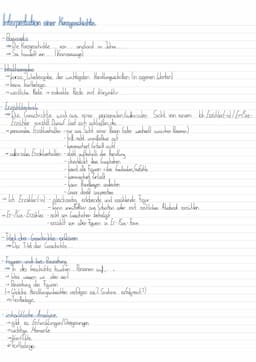 Interpretation einer Kurzgeschichte.
- Basissatz
→ Die Kurzgeschichte ... von ... entstand im Jahre...
→ Sie handelt von ... (Kernaussage)
Inhaltsangabe
→ kurze Wiedergabe der wichtigsten Handlungsschritten (in eigenen Worten)
→ keine Textbelege
→ wörtliche Rede → indirekte Rede mit Konjunktiv
Erzähltechnik
→ Die Geschichte wird aus einer personalen/auktorialen Sicht von einem Ich-Erzähler(in)/Er-/Sie-
Erzähler erzählt. Darauf lässt sich schließen, da...
→ personales Erzählverhalten - nur aus Sicht einer Person (oder wechselt zwischen Personen)
- tritt nicht unmittelbar auf
- kommentiert Erzählt nicht
→ auktoriales Erzählverhalten - steht außerhalb der Handlung
- überblickt das Geschehen
- kennt alle Figuren + ihre Gedanken/Gefühle
- kommentiert Erzählt
- kann Handlungen andeuten
- Leser direkt ansprechen
→ Ich-Erzähler(in) - gleichzeitig erlebende und erzählende Figur
- kann unmittelbar aus Situation oder mit zeitlichem Abstand erzählen
→ Er-/Sie-Erzähler - nicht am Geschehen beteiligt
- erzählt von allen Figuren in Er-/Sie-Form
- Titel der Geschichte erklären
→ Der Titel der Geschichte...
- Figuren und ihre Beziehung
→ In der Geschichte tauchen ... Personen auf...
→ Was wissen wir über sie?
→ Beziehung der Figuren
→ Textbelege
- inhaltliche Analyse
→ gibt es Entwicklungen/Steigerungen
→ wichtige Momente
→ Konflikte
→ Textbelege